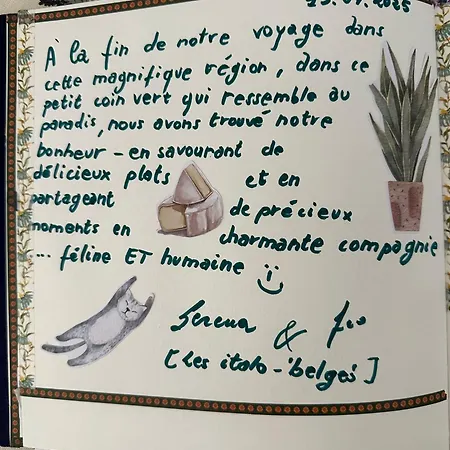 À la fin de notre voyage dans
cette magnifique région, dans ce
petit coin vert qui ressemble au
paradis, nous avons trouvé notre
bonheur - en savourant de
délicieux plats et en
partageant de précieux
moments en charmante compagnie
... féline ET humaine
Serena &
[les italo-belges]